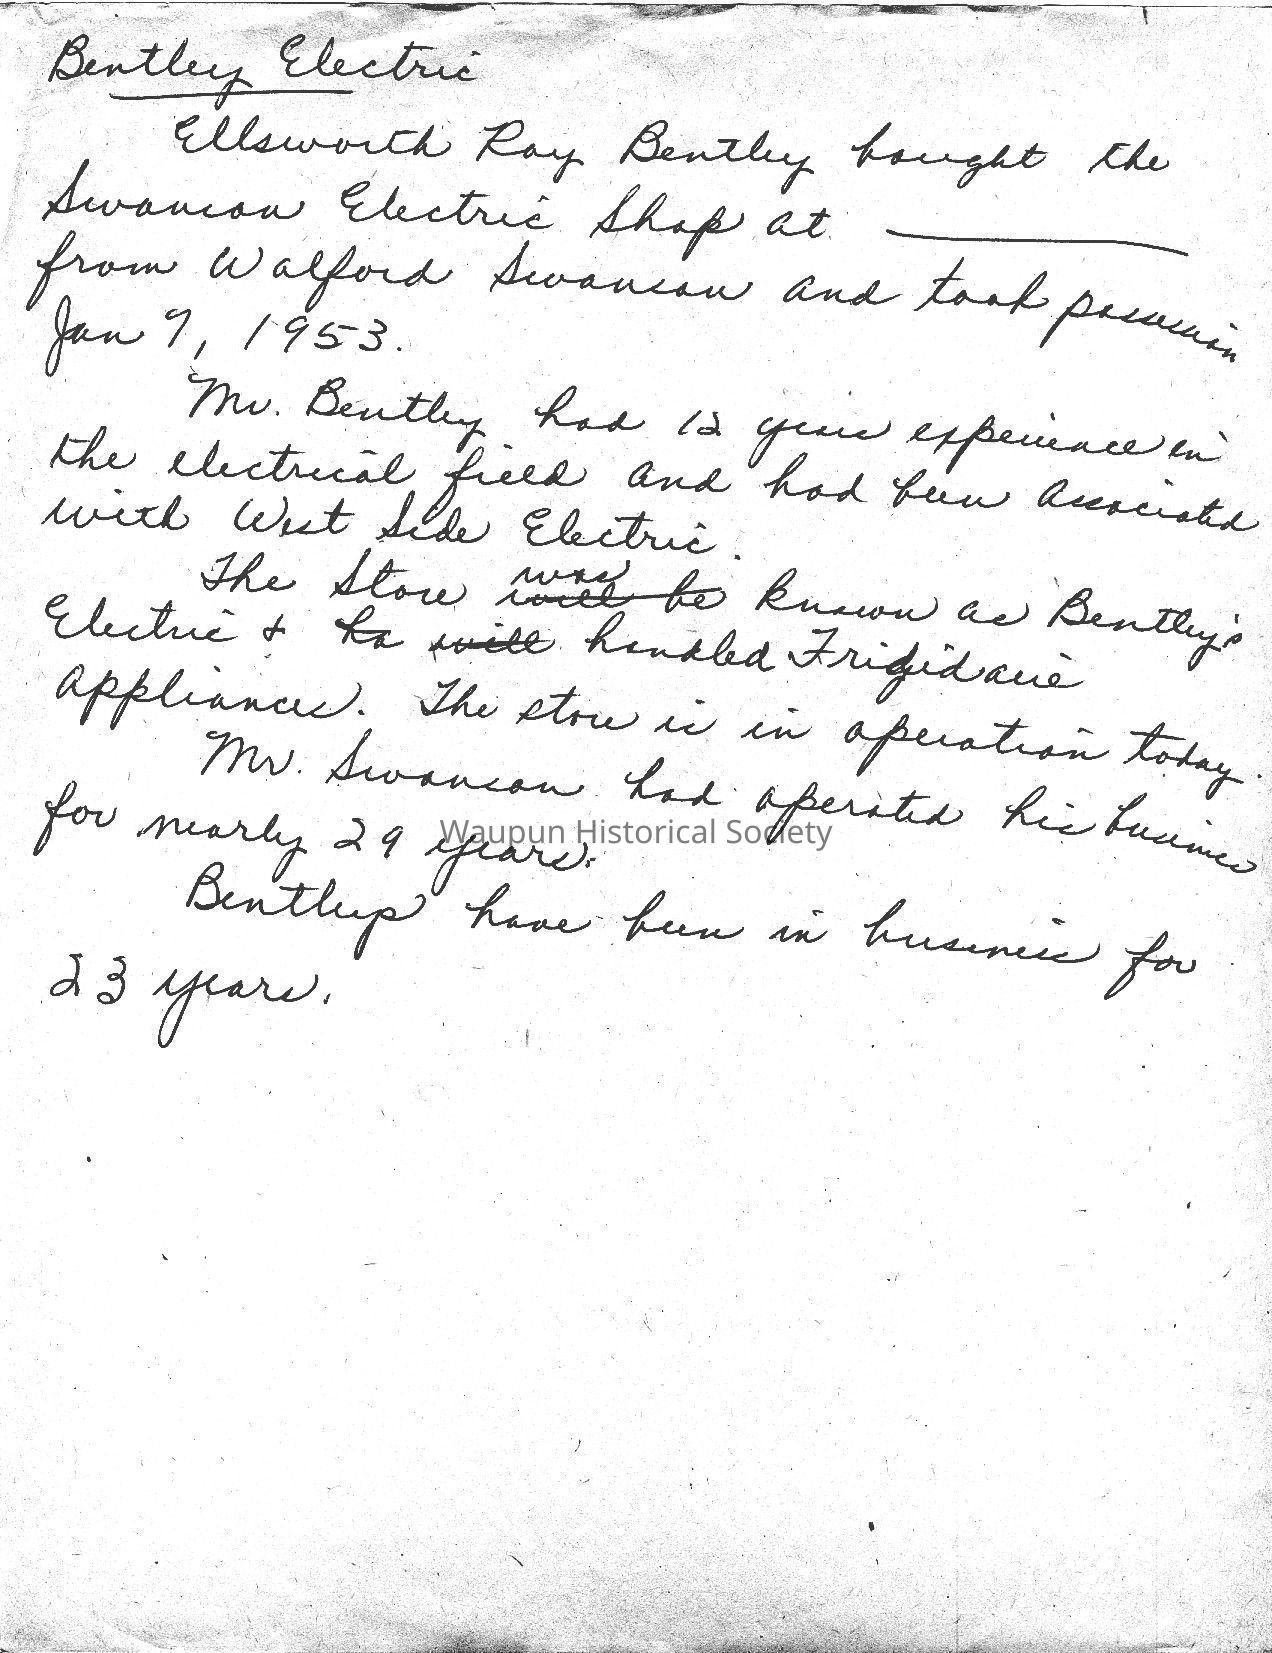 Bentley Electric
Ellsworth Ray Bentley bought the
Swanson Electric Shop at ________
from Walford Swanson and took possession
Jan 7, 1953.
Mr. Bentley had 12 years experience in
the electrical field and had been associated
with West Side Electric.
The Store was ~~will be~~ known as Bentley's
Electric & ~~ha~~ ~~will~~ handled Frigidaire
appliances. The store is in operation today.
Mr. Swanson had operated his business
for nearly 29 years.
Waupun Historical Society
Bentleys have been in business for
23 years.